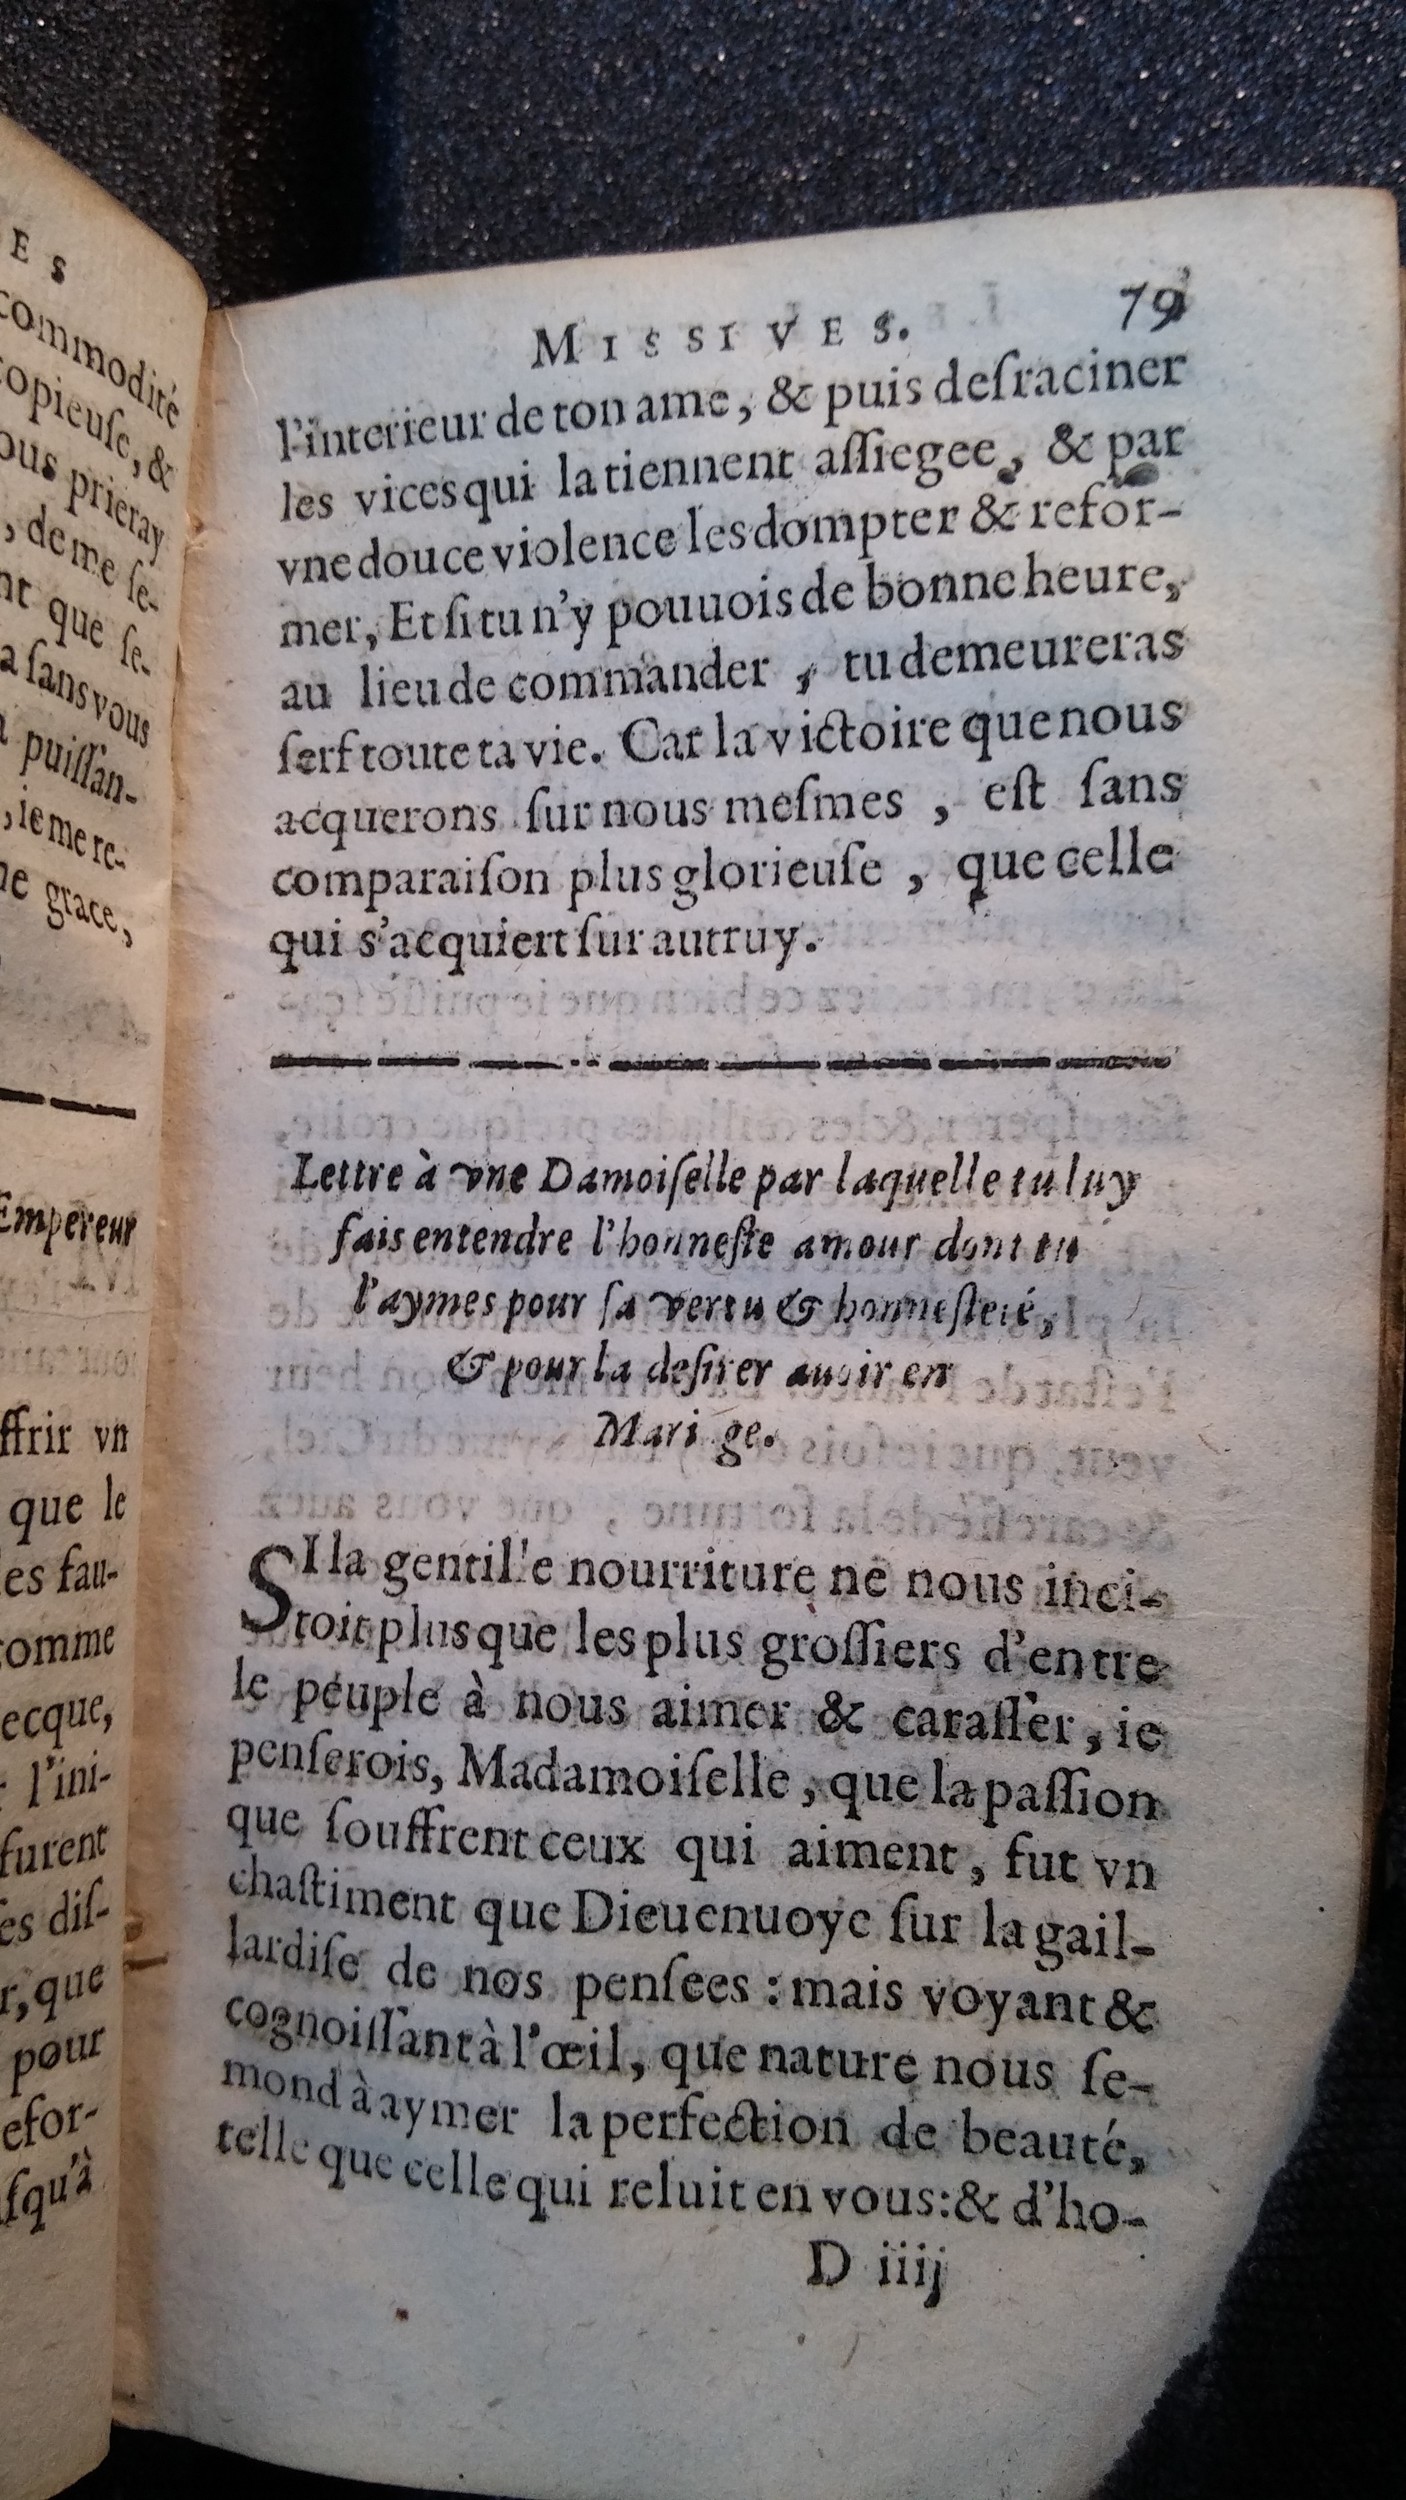 ES
commodité
copieuſe, &
ous prieray
, de me ſe-
nt que ſe-
a ſans vous
puiſſan-
, ie me re-
ne grace,
Empereur
ffrir vn
que le
es fau-
comme
ecque,
l'ini-
furent
es diſ-
r, que
pour
efor-
ſqu'à
MISSIVES. 79
l'interieur de ton ame, & puis deſraciner
les vices qui la tiennent aſſiegee, & par
vne douce violence les dompter & refor-
mer, Et ſi tu n'y pouuois de bonne heure,
au lieu de commander, tu demeureras
ſerf toute ta vie. Car la victoire que nous
acquerons ſur nous meſmes, eſt ſans
comparaiſon plus glorieuſe, que celle
qui s'acquiert ſur autruy.
Lettre à vne Damoiſelle par laquelle tu luy
fais entendre l'honneſte amour dont tu
l'aymes pour ſa vertu & honneſteté,
& pour la deſirer auoir en
Mari ge.
SI la gentil'e nourriture ne nous inci-
toit plus que les plus groſſiers d'entre
le peuple à nous aimer & caraſſer, ie
penſerois, Madamoiſelle, que la paſſion
que ſouffrent ceux qui aiment, fut vn
chaſtiment que Dieu enuoye ſur la gail-
lardiſe de nos penſees : mais voyant &
cognoiſſant à l'œil, que nature nous ſe-
mond à aymer la perfection de beauté,
telle que celle qui reluit en vous: & d'ho-
D iiij